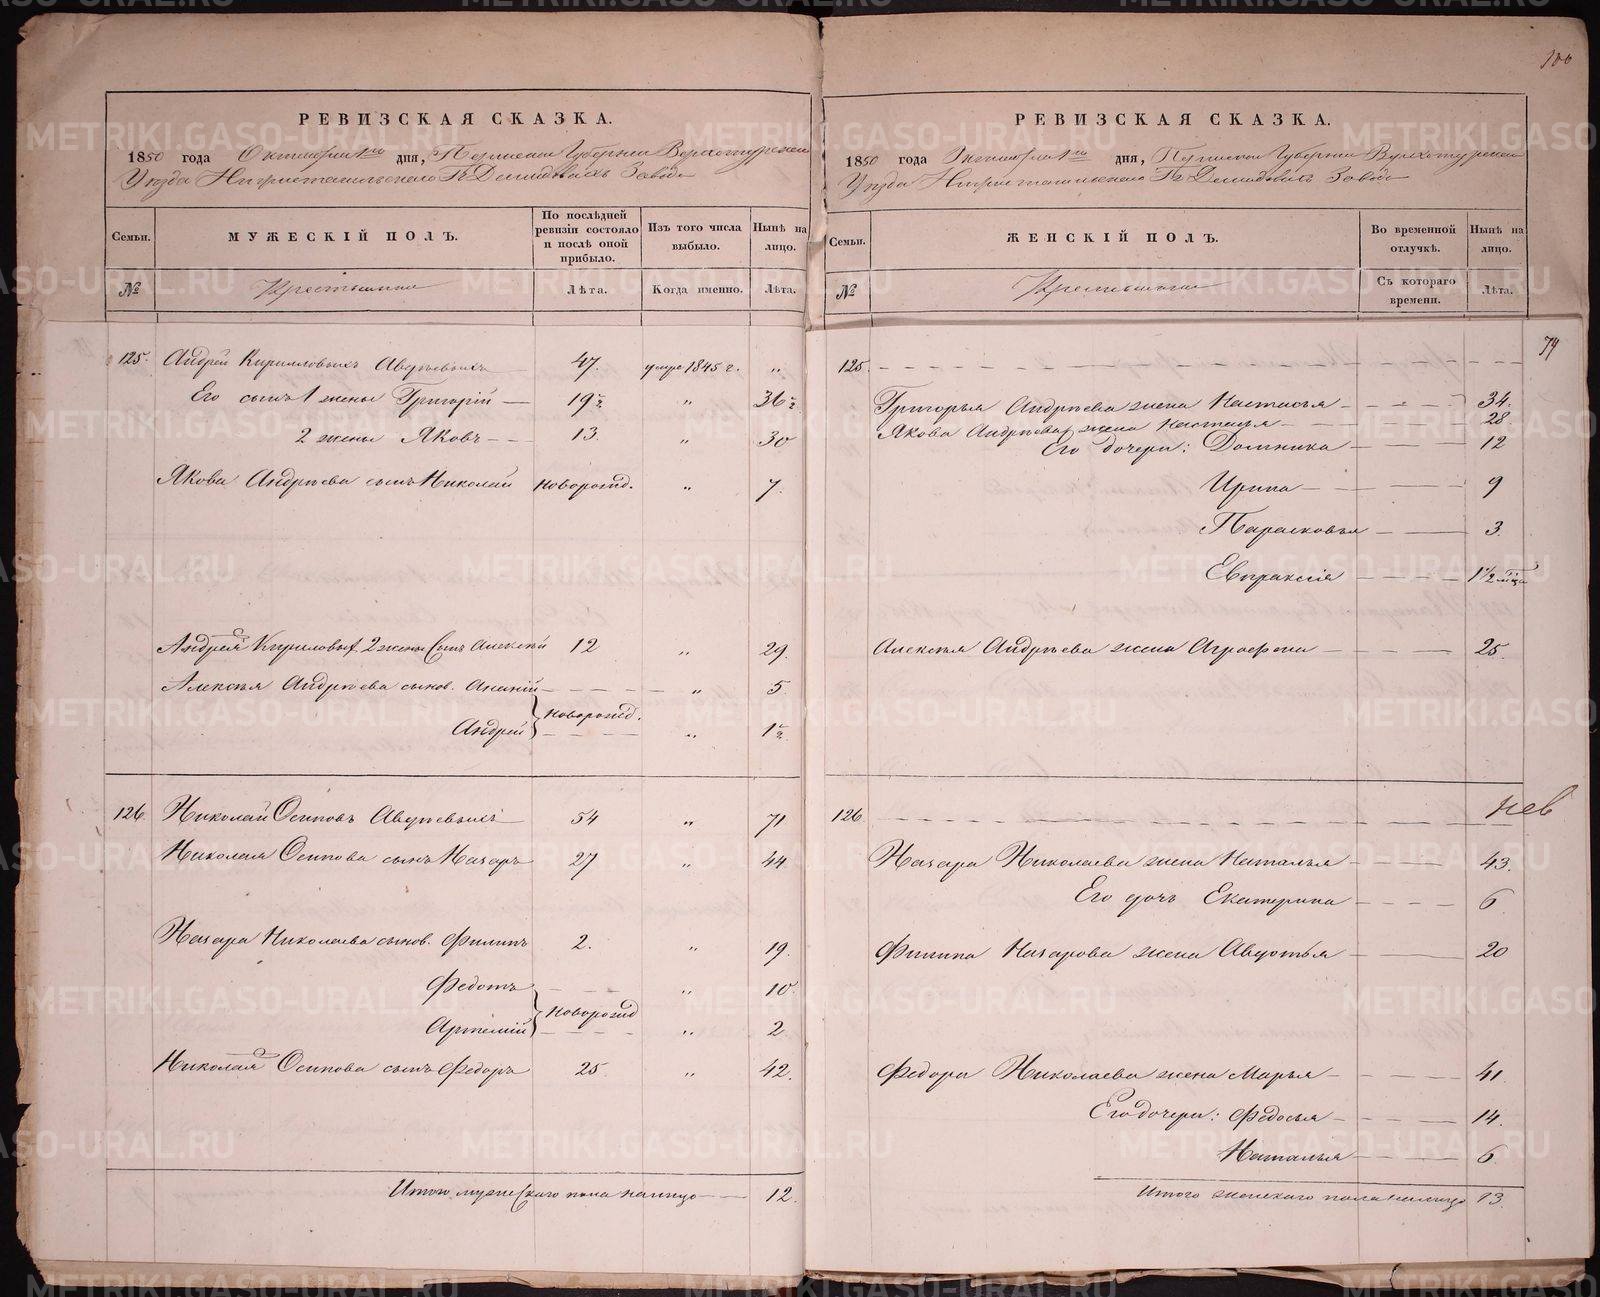 100
РЕВИЗСКАЯ СКАЗКА.
1850 года Октября 1го дня, Пермской Губернии Верхотурскаго
Уезда Нижнетагильскаго Гг Демидовыхъ Завода
Семьи. МУЖЕСКІЙ ПОЛЪ. По послѣдней ревизіи состояло и послѣ оной прибыло. Изъ того числа выбыло. Нынѣ на лицо.
№ Крестьяне Лѣта. Когда именно. Лѣта.
125. Андрей Кирилловыхъ Авдѣевыхъ 47. умре 1845 г. „
Его сынъ 1 жены Григорій — 19½ „ 36½
2 жены Яковъ — — 13. „ 30
Якова Андрѣева сынъ Николай новорожд. „ 7.
Андрея Кириловых 2 жены Сынъ Алексѣй 12 „ 29.
Алексѣя Андрѣева сынов. Ананій „ 5.
новорожд.
Андрей „ 1½
126. Николай Осиповъ Авдѣевыхъ 54 „ 71
Николая Осипова сынъ Назаръ 27 „ 44
Назара Николаева сынов. Филипъ 2. „ 19.
Федотъ „ 10.
новорожд
Артемій „ 2
Николая Осипова сынъ Федоръ 25 „ 42.
Итого мужескаго пола налицо — 12.
РЕВИЗСКАЯ СКАЗКА.
1850 года Октября 1го дня, Пермской Губернии Верхотурскаго
Уезда Нижнетагильскаго Гг Демидовыхъ Завода
Семьи. ЖЕНСКІЙ ПОЛЪ. Во временной отлучкѣ. Нынѣ на лицо.
№ Крестьяне Съ котораго времени. Лѣта.
74
125.
Григорья Андрѣева жена Настасья — 34.
Якова Андрѣева жена Настасья — 28
Его дочери: Домника — 12
Ирина — 9
Парасковья — 3.
Евпраксія — 1½ мѣца
Алексѣя Андрѣева жена Аграфена — 25.
нев
126.
Назара Николаева жена Наталья — 43.
Его дочь Екатерина — 6
Филипа Назарова жена Авдотья — 20
Федора Николаева жена Марья — 41
Его дочери: Федосья — 14.
Наталья — 6
Итого женскаго пола налицо 13.
METRIKI.GASO-URAL.RU